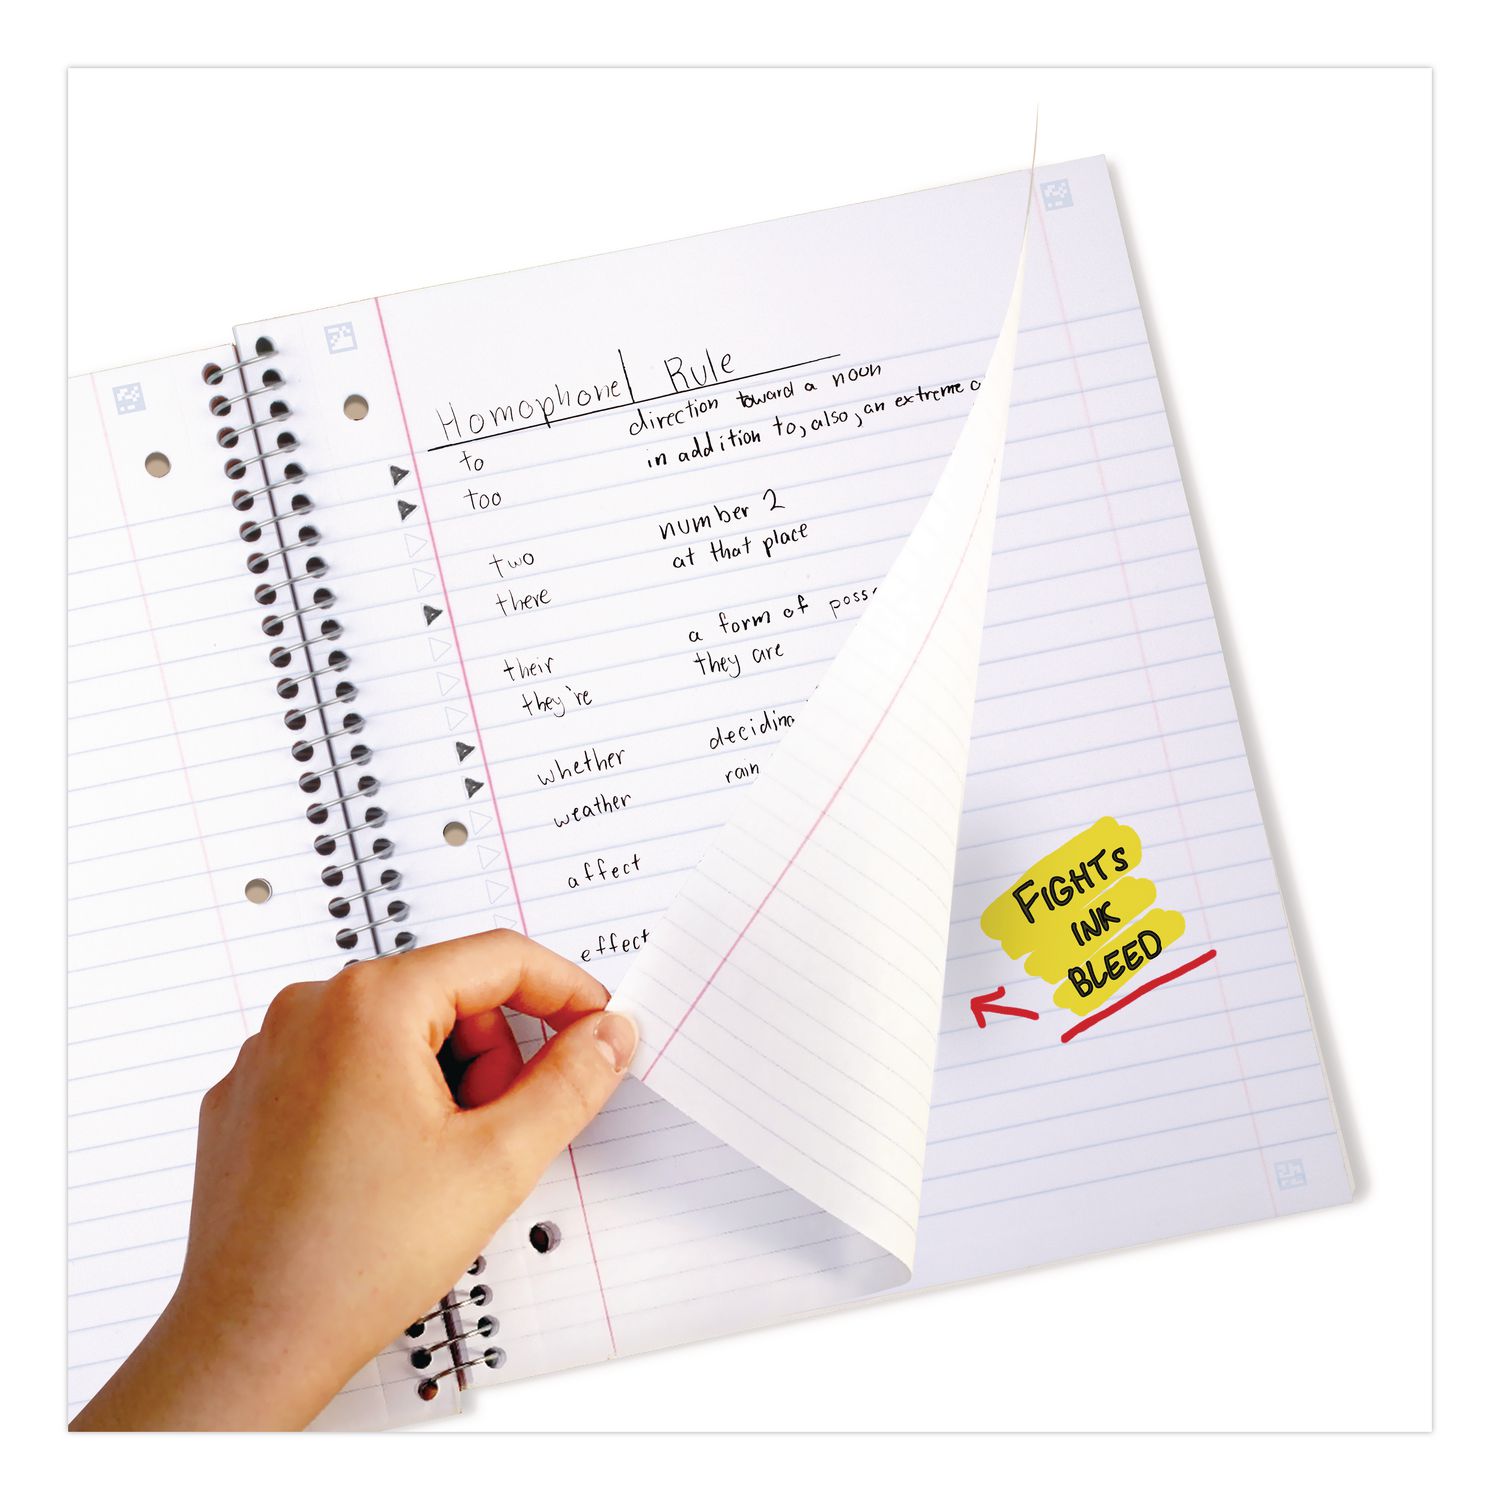 Homophone Rule
to direction toward a noun
too in addition to, also, an extreme
two number 2
there at that place
their a form of
they're they are
whether deciding
weather rain
affect
effect
FIGHTS
INK
BLEED